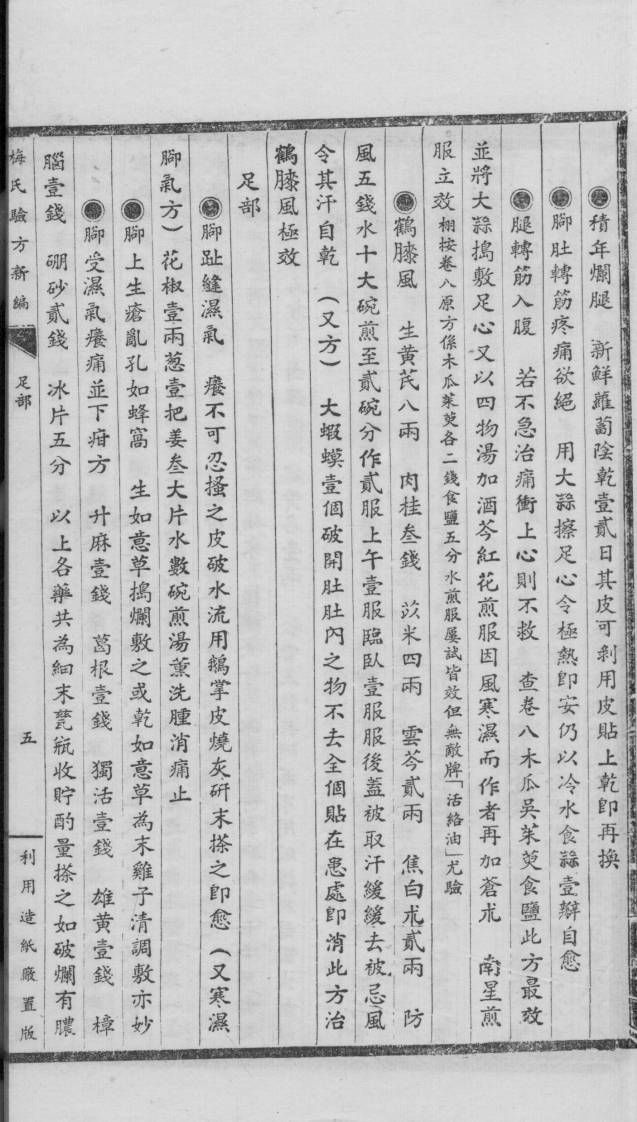 ●積年爛腿　新鮮蘿蔔陰乾壹貳日其皮可剥用皮貼上乾即再換
●脚肚轉筋疼痛欲絕　用大蒜擦足心令極熱即安仍以冷水食蒜壹瓣自愈
●腿轉筋入腹　若不急治痛衝上心則不救　查卷八木瓜吳茱萸食鹽此方最效
並將大蒜搗敷足心又以四物湯加酒芩紅花煎服因風寒濕而作者再加蒼朮　南星煎
服立效栩按卷八原方係木瓜茱萸各二錢食鹽五分水煎服屢試皆效但無敵牌「活絡油」尤驗
●鶴膝風　生黄芪八兩　肉桂叁錢　苡米四兩　雲苓貳兩　焦白朮貳兩　防
風五錢水十大碗煎至貳碗分作貳服上午壹服臨臥壹服服後蓋被取汗緩緩去被忌風
令其汗自乾　（又方）　大蝦蟆壹個破開肚肚內之物不去全個貼在患處即消此方治
鶴膝風極效
足部
●脚趾縫濕氣　癢不可忍搔之皮破水流用鵝掌皮燒灰研末搽之即愈（又寒濕
脚氣方）花椒壹兩葱壹把姜叁大片水數碗煎湯薰洗腫消痛止
●脚上生瘡亂孔如蜂窩　生如意草搗爛敷之或乾如意草為末雞子清調敷亦妙
●脚受濕氣癢痛並下疳方　升麻壹錢　葛根壹錢　獨活壹錢　雄黄壹錢　樟
腦壹錢　硼砂貳錢　冰片五分　以上各藥共為細末甆瓶收貯酌量搽之如破爛有膿
梅氏驗方新編　足部　五　利用造紙廠置版